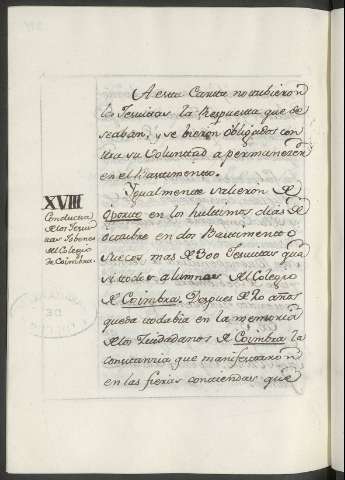 A esta Carta no tubieron
los Jesuitas la Respuesta que de
seaban, y se bieron obligados con
tra su Voluntad a permanecer
en el Bastimento.
Ygualmente salieron de
Oporto en los hultimos dias de
Octubre en dos Bastimento
Suecos, mas de 300 Jesuitas qua
si todos alumnos del Colegio
de Coimbra. Despues de 20 años
queda todabia en la memoria
de los Ciudadanos de Coimbra la
constanzia que manifestaron
en las fieras contiendas que
XVIII
Conducta
de los Jesui
tas Jobenes
del Colegio
de Coimbra.